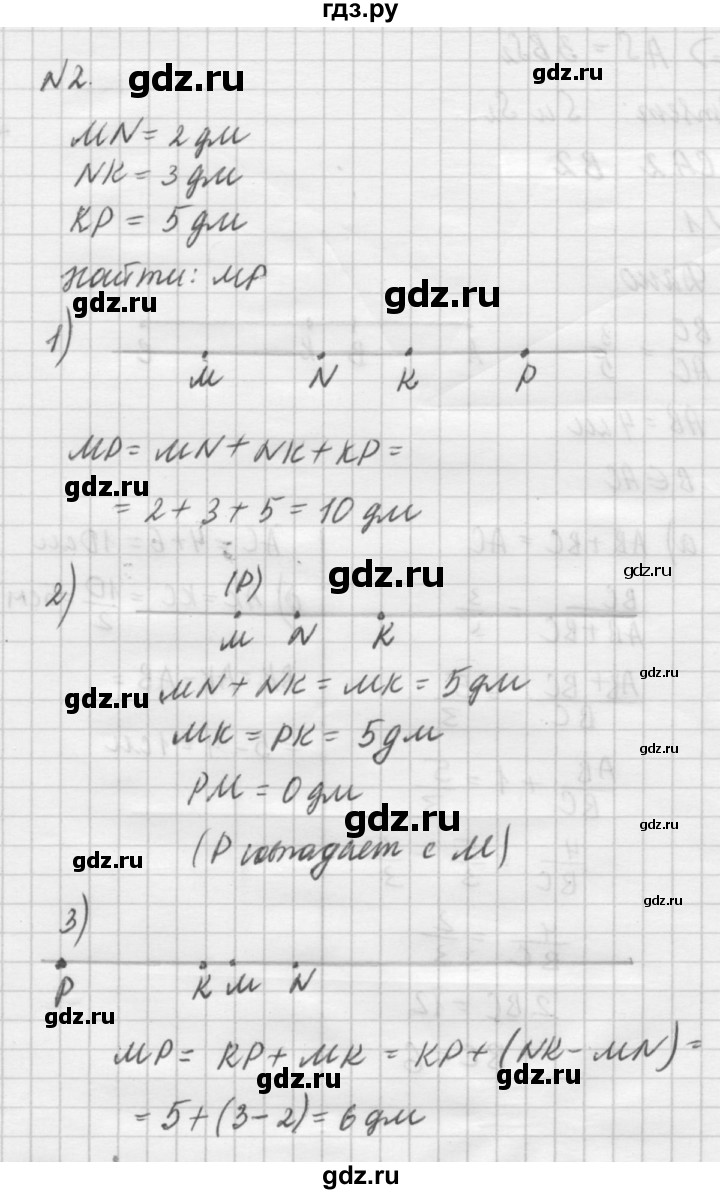 гдз.ру
N2.
gdz.ru
gdz.ru
MN = 2 дм
NK = 3 дм
KP = 5 дм
найти: MP
gdz.ru
gdz.ru
1)
M N K P
MP = MN + NK + KP =
gdz.ru
= 2 + 3 + 5 = 10 дм
gdz.ru
gdz.ru
2)
(P)
M N K
gdz.ru
MN + NK = MK = 5 дм
gdz.ru
MK = PK = 5 дм
gdz.ru
PM = 0 дм
gdz.ru
gdz.ru
(P совпадает с M)
gdz.ru
gdz.ru
3)
P K M N
gdz.ru
MP = KP + MK = KP + (NK - MN) =
gdz.ru
gdz.ru
= 5 + (3 - 2) = 6 дм
gdz.ru